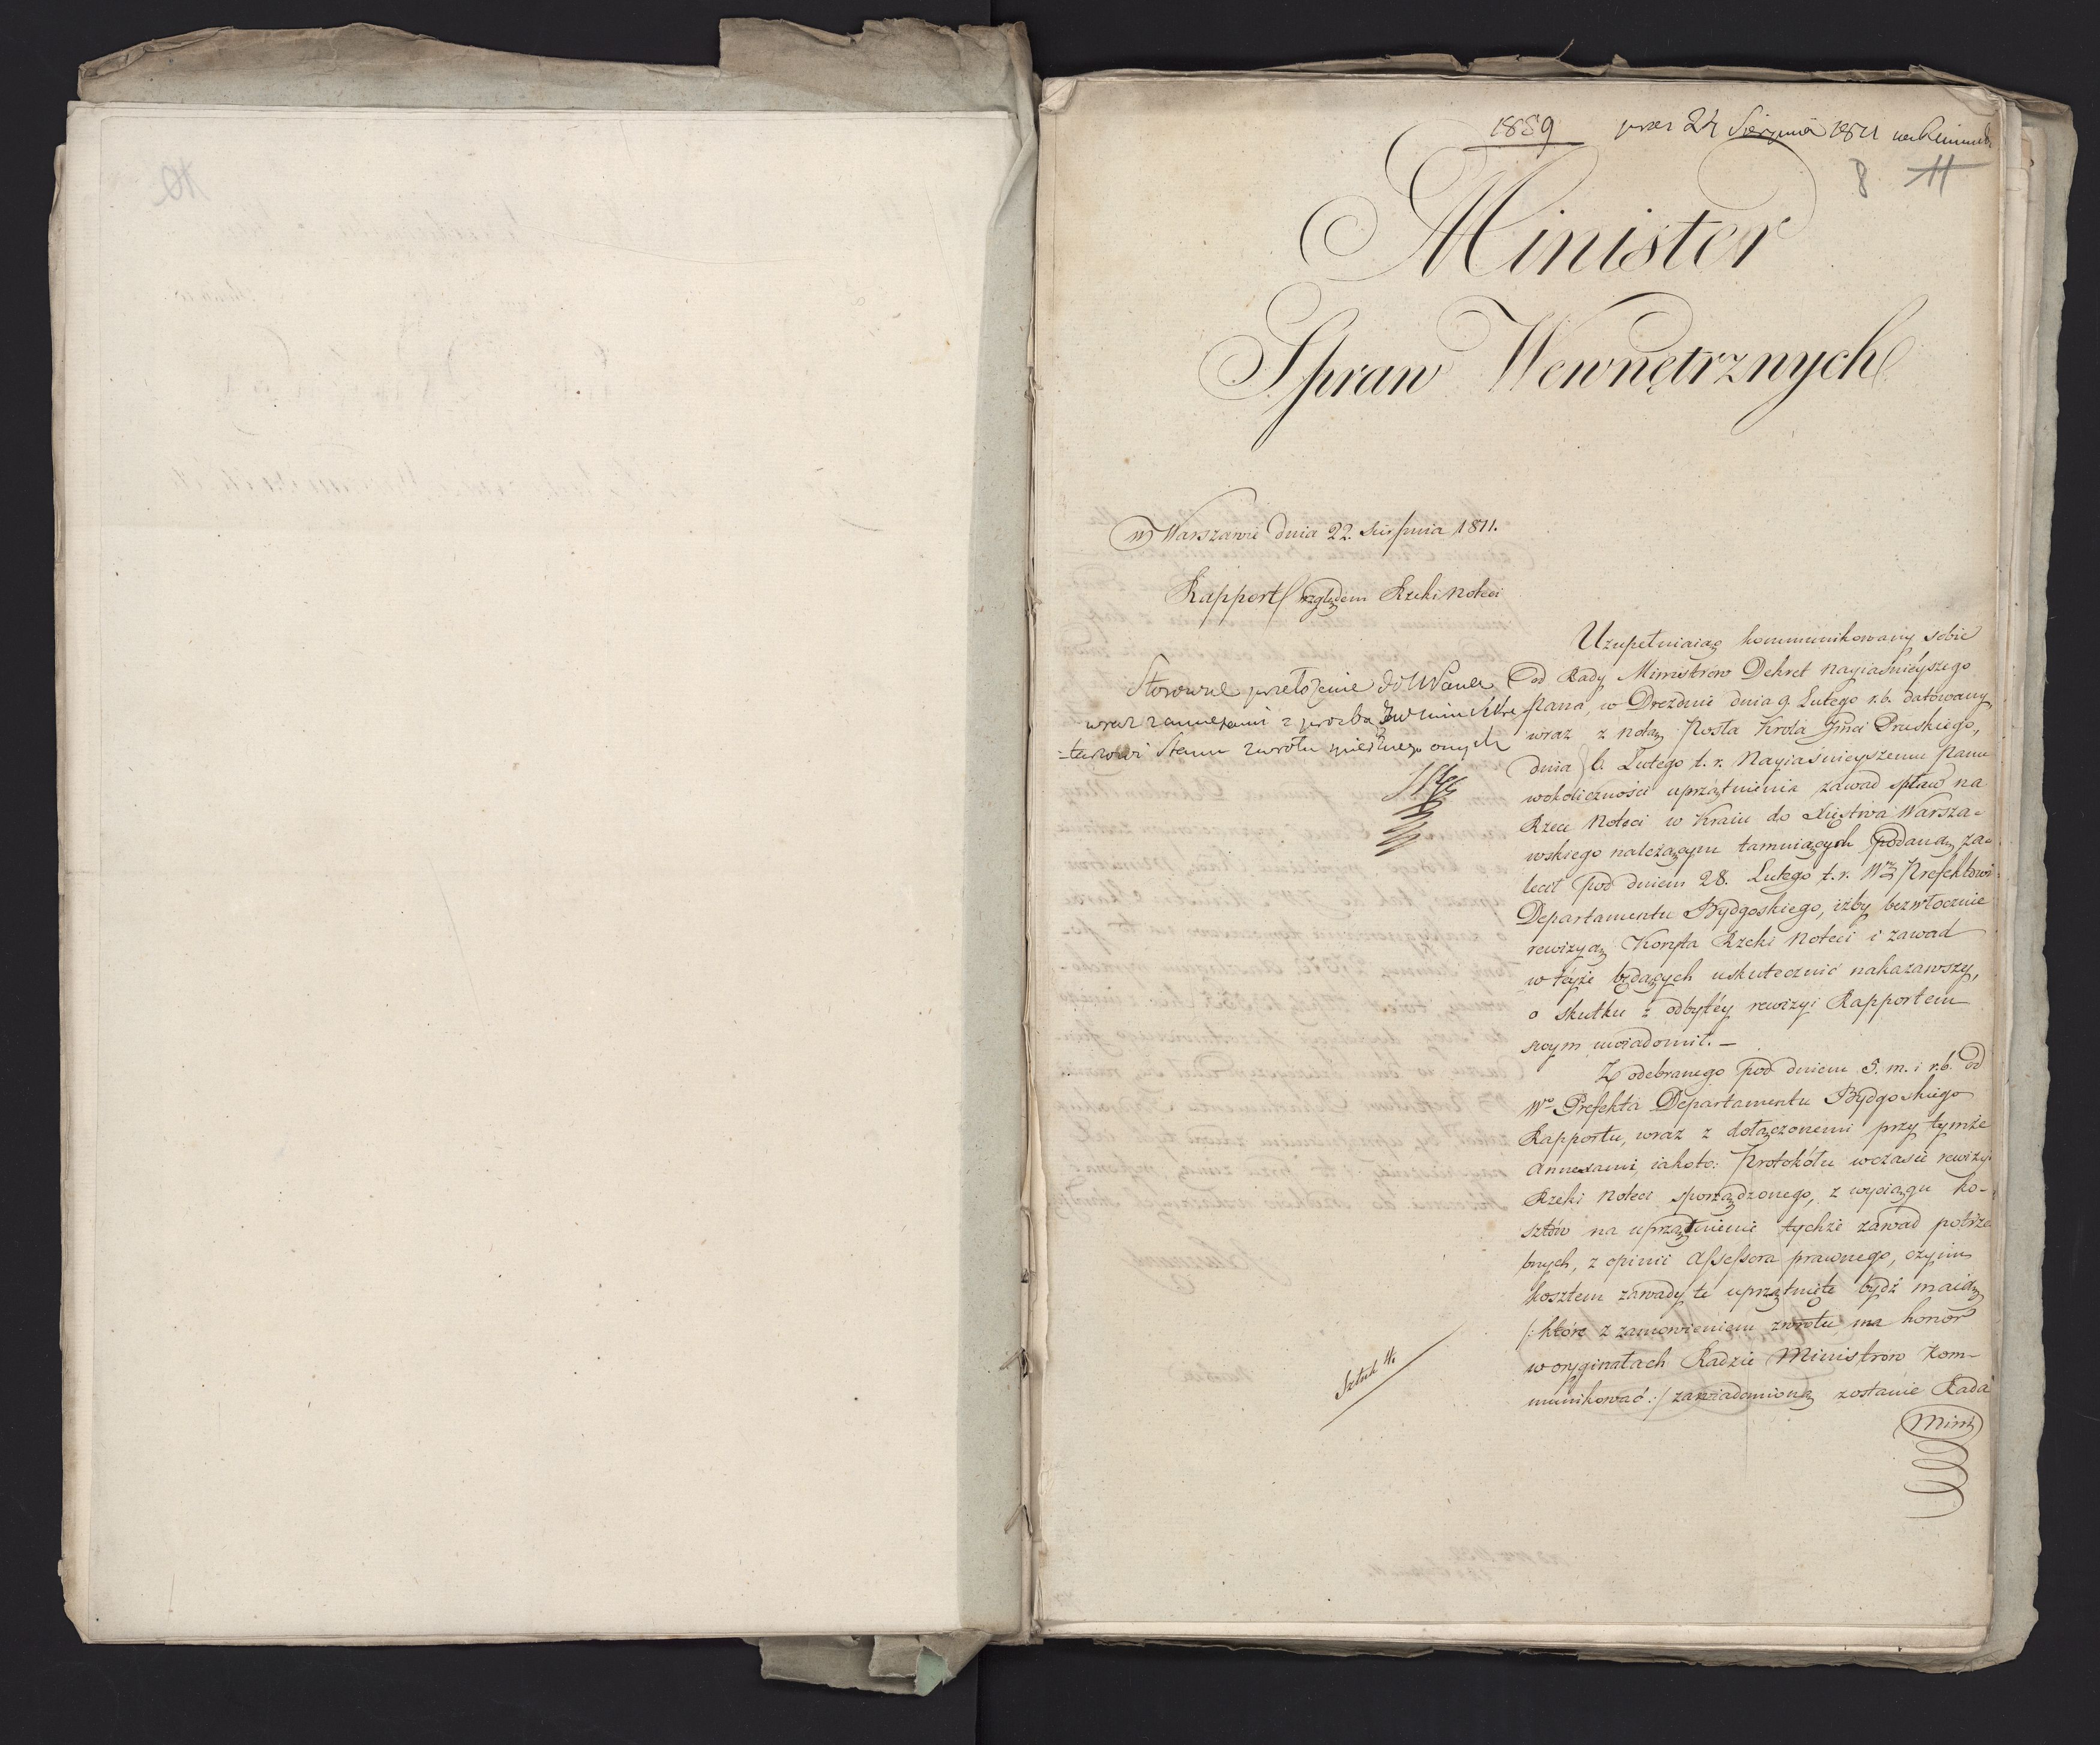 1889 24 Sierpnia 1811
8 11
Minister
Spraw Wewnętrznych
w Warszawie dnia 22. Sierpnia 1811.
Rapport względem Rzeki Noteci
Stosowne przełożenie do
wraz z annexami z prośbą
Stanu zwrotu onych
Uzupełniaiąc kommunikowany sobie
od Rady Ministrów Dekret Nayiaśnieyszego
Pana, w Dreznie dnia 9. Lutego r.b. datowany,
wraz z notą Posła Krola Jmci Pruskiego,
dnia 6. Lutego t. r. Nayiaśnieyszemu Panu
wokoliczności uprzątnienia zawad spław na
Rzece Noteci w Kraiu do Xięstwa Warsza-
wskiego należącym tamuiących podaną, za-
lecił pod dniem 28. Lutego t. r. Wmu Prefektowi
Departamentu Bydgoskiego, iżby bezwłocznie
rewizyą Koryta Rzeki Noteci i zawad
w teyże będących uskutecznić nakazawszy,
o skutku z odbytéy rewizyi Rapportem
swym uwiadomił. —
Z odebranego pod dniem 5. m. i r.b. od
Wo Prefekta Departamentu Bydgoskiego
Rapportu, wraz z dołączonemi przy tymże
annexami iakoto: Protokółu wczasie rewizyi
Rzeki Noteci sporządzonego, z wyciągu ko-
sztów na uprzątnienie tychże zawad potrze
bnych, z opinii Assessora prawnego, czyim
kosztem zawady te uprzątnięte bydź maią
/: które z zamowieniem zwrotu ma honor
w oryginałach Radzie Ministrów kom-
munikować :/ zawiadomioną zostanie Rada
Sztuk 4.
Mini